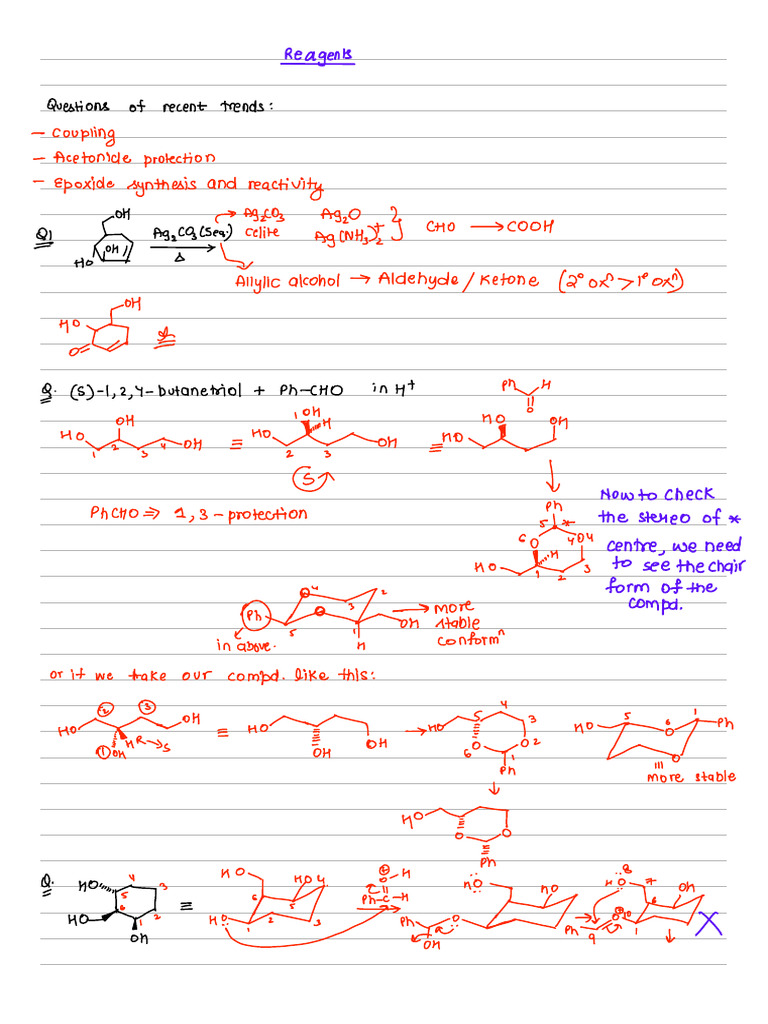 Reagents
Questions of recent trends:
– Coupling
– Acetonide protection
– Epoxide synthesis and reactivity
Q1
OH
OH
HO
Ag₂CO₃(Seq.)
Δ
Ag₂CO₃
Celite
Ag₂O
Ag(NH₃)₂⁺
CHO → COOH
Allylic alcohol → Aldehyde / Ketone (2° oxⁿ > 1° oxⁿ)
OH
HO
O
Q. (S)-1,2,4-butanetriol + Ph-CHO in H⁺
HO OH OH
1 2 3 4
≡
HO 1 OH H OH
2 3
S
≡
HO HO OH
Ph H
O
PhCHO ⇒ 1,3-protection
Ph
5 *
6 O 4 O 4
HO H
1 2 3
Now to check
the stereo of *
centre, we need
to see the chair
form of the
compd.
Ph O 4 O 2 3
5 1 OH
H
in above.
→ more
stable
conformⁿ
or if we take our compd. like this:
HO 2 3 OH
1 OH H R → S
≡
HO OH OH
→
HO 5 4 3
6 O O 2
1
Ph
HO 5 6 O 1 Ph
O
more stable
HO
O O
Ph
Q.
HO 4 5 3
HO 6 2
1
OH
≡
HO HO 4
6 5
HO 1 2 3
⊕
O H
Ph-C-H
HO HO
Ph O
OH
8
HO 7 OH
6
Ph O 10
9 1
X